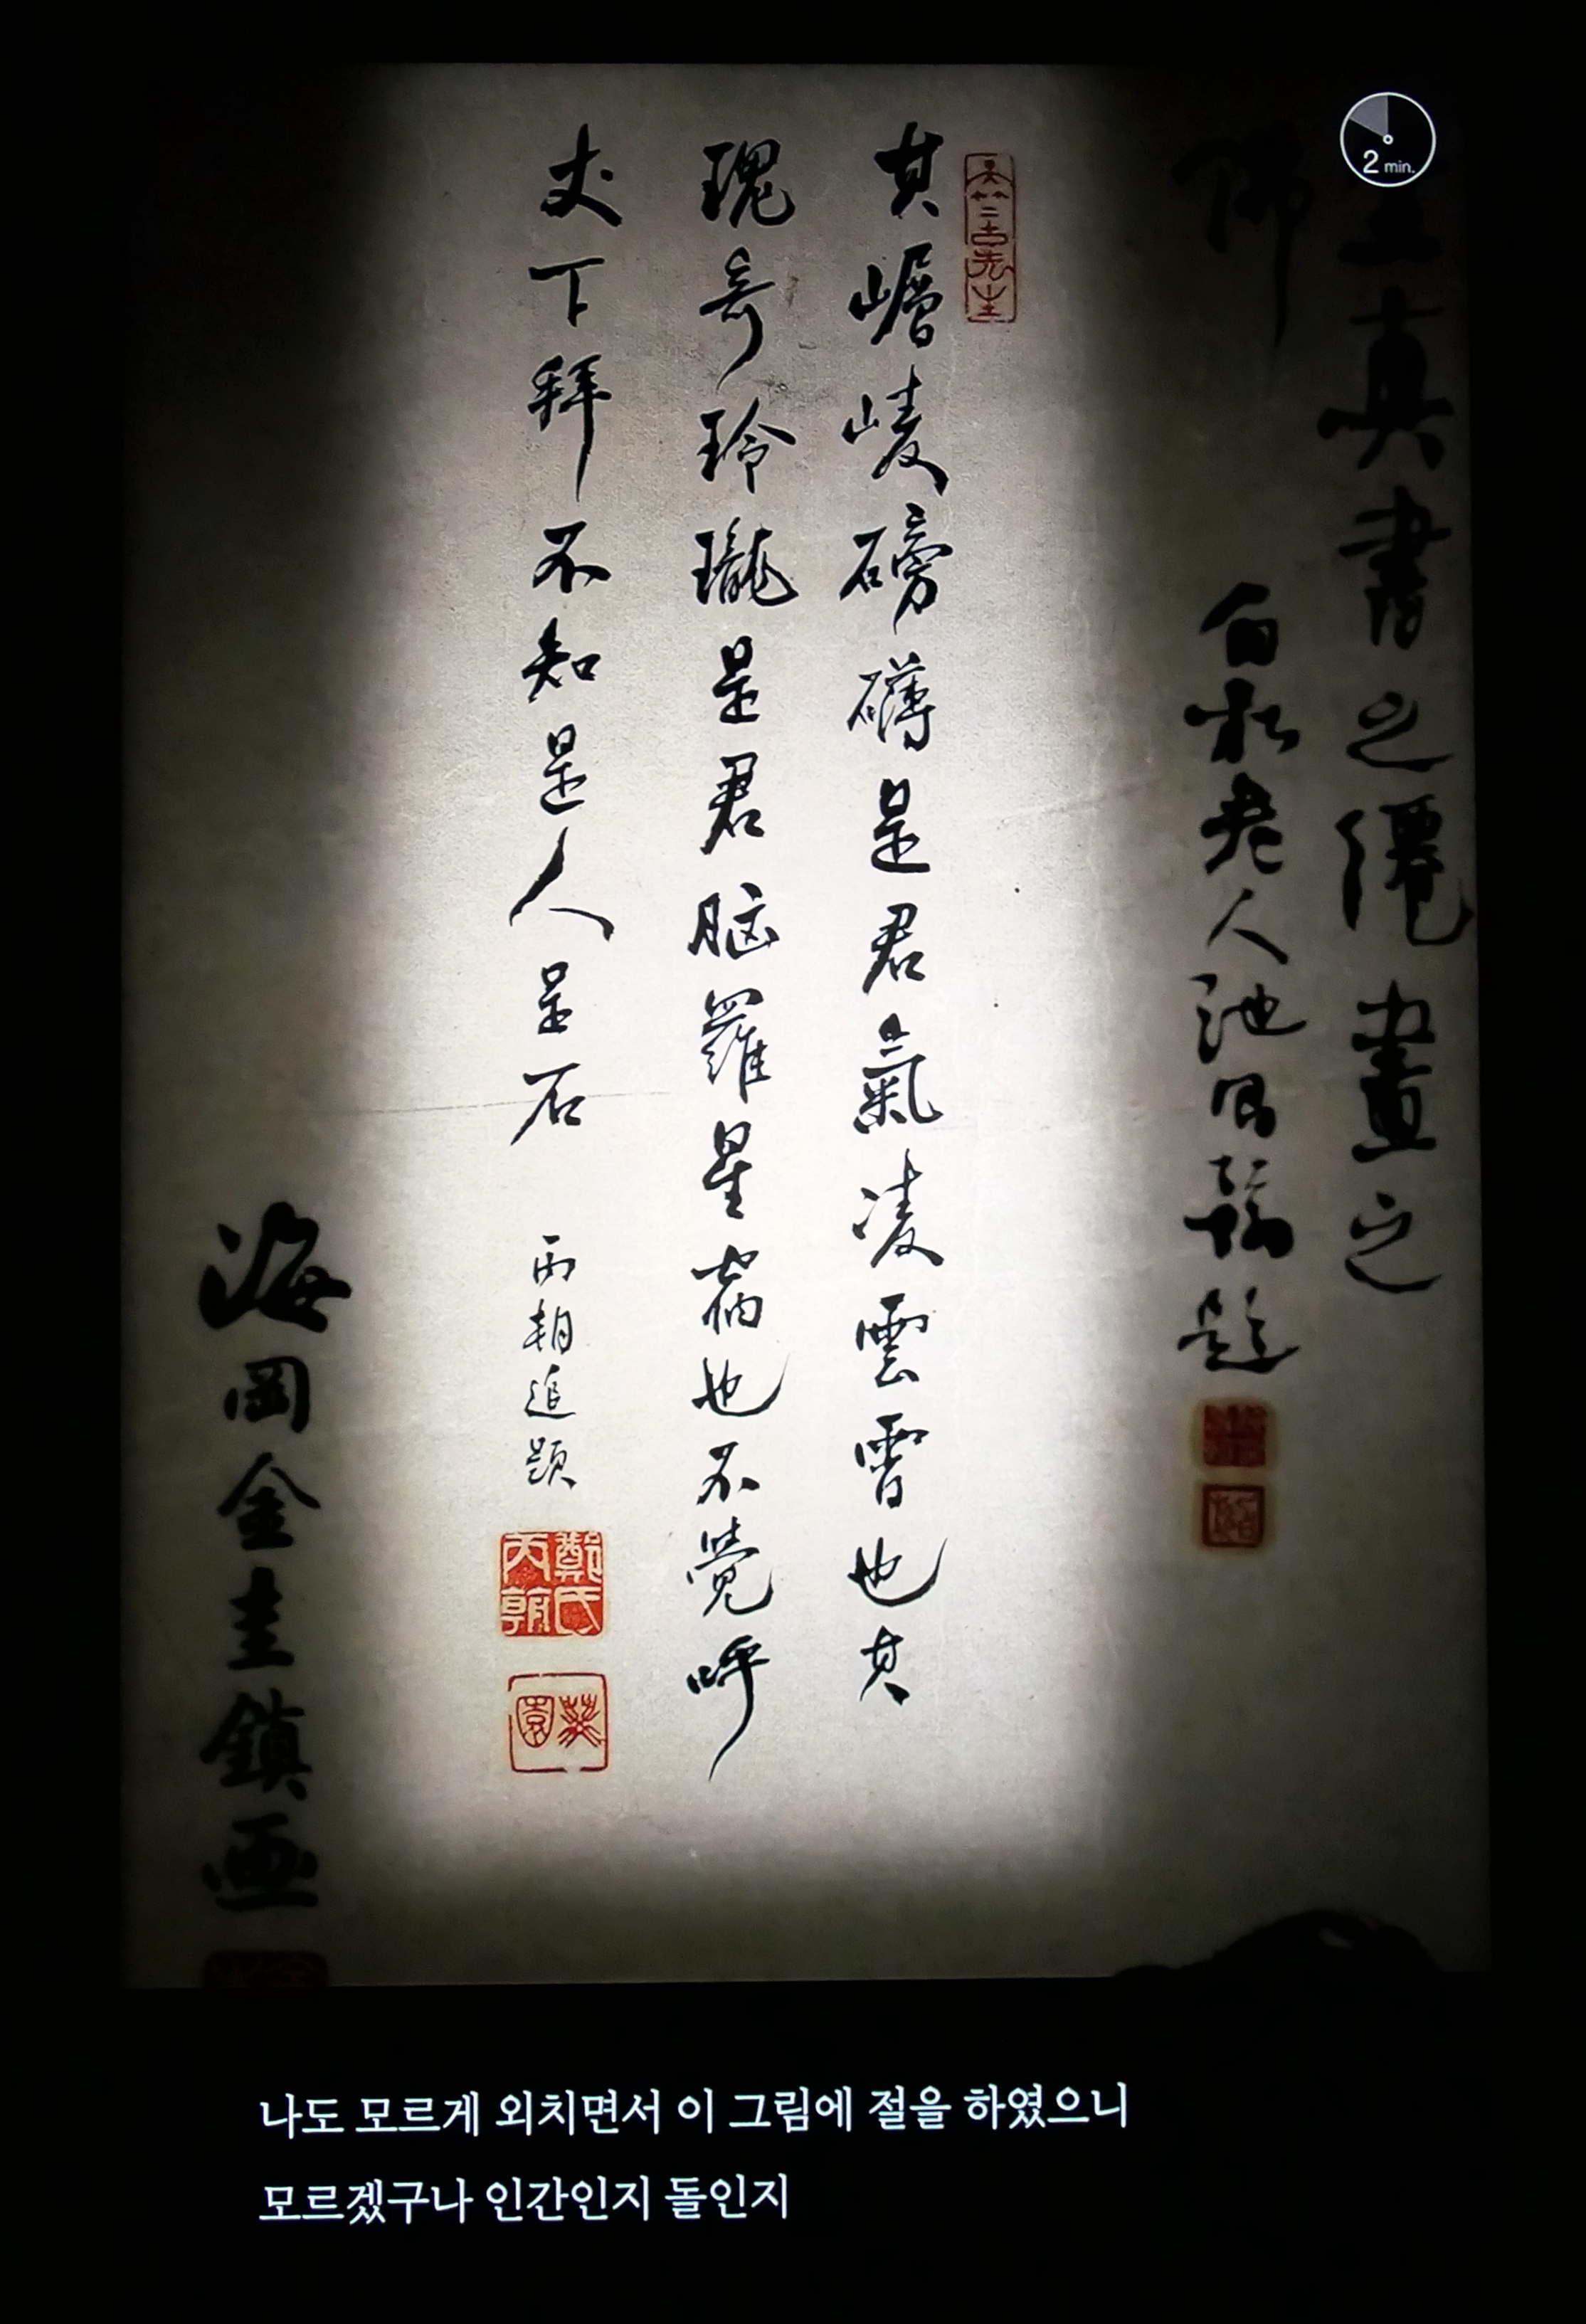 2 min.
真書之僊畫之
佛
白松老人池昌翰題
天竺古先生
其嶒崚磅礴是君氣凌雲霄也其
瑰奇玲瓏是君脑羅星宿也不覺呼
丈下拜不知是人是石
丙朝追題
鄭氏丙朝
葵園
海岡金圭鎮画
나도 모르게 외치면서 이 그림에 절을 하였으니
모르겠구나 인간인지 돌인지